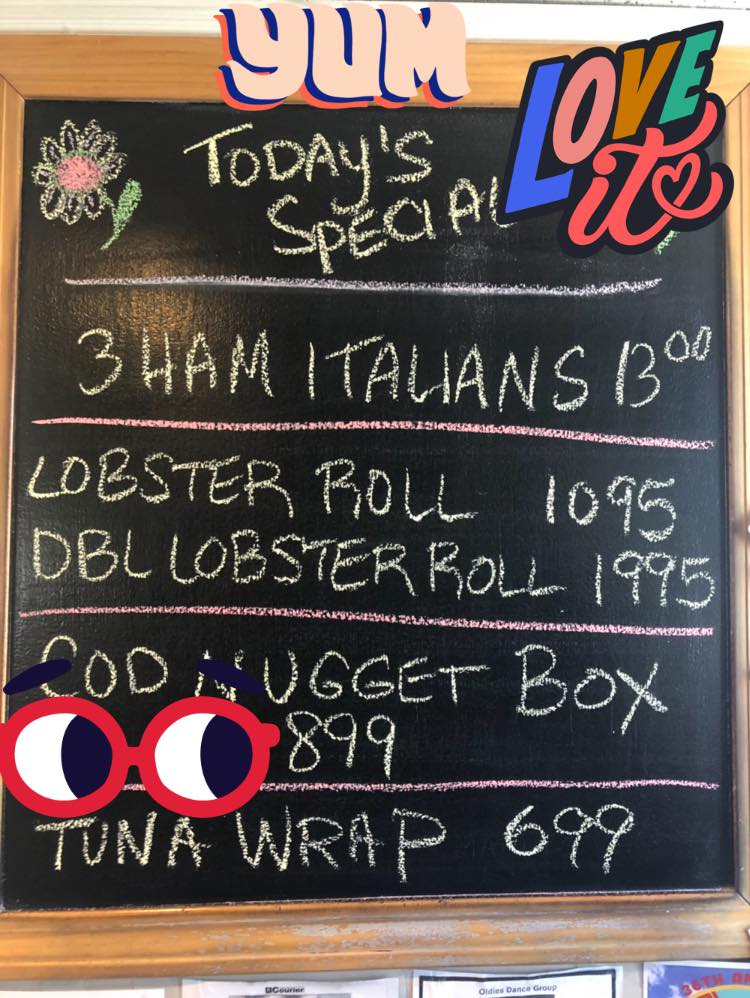 YUM
LOVE
it
TODAY'S
SPECIAL
3 HAM ITALIANS 13⁰⁰
LOBSTER ROLL 1095
DBL LOBSTER ROLL 1995
COD NUGGET BOX
899
TUNA WRAP 699
Courier
Oldies Dance Group